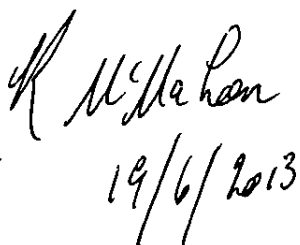 R McMahon
19/6/2013